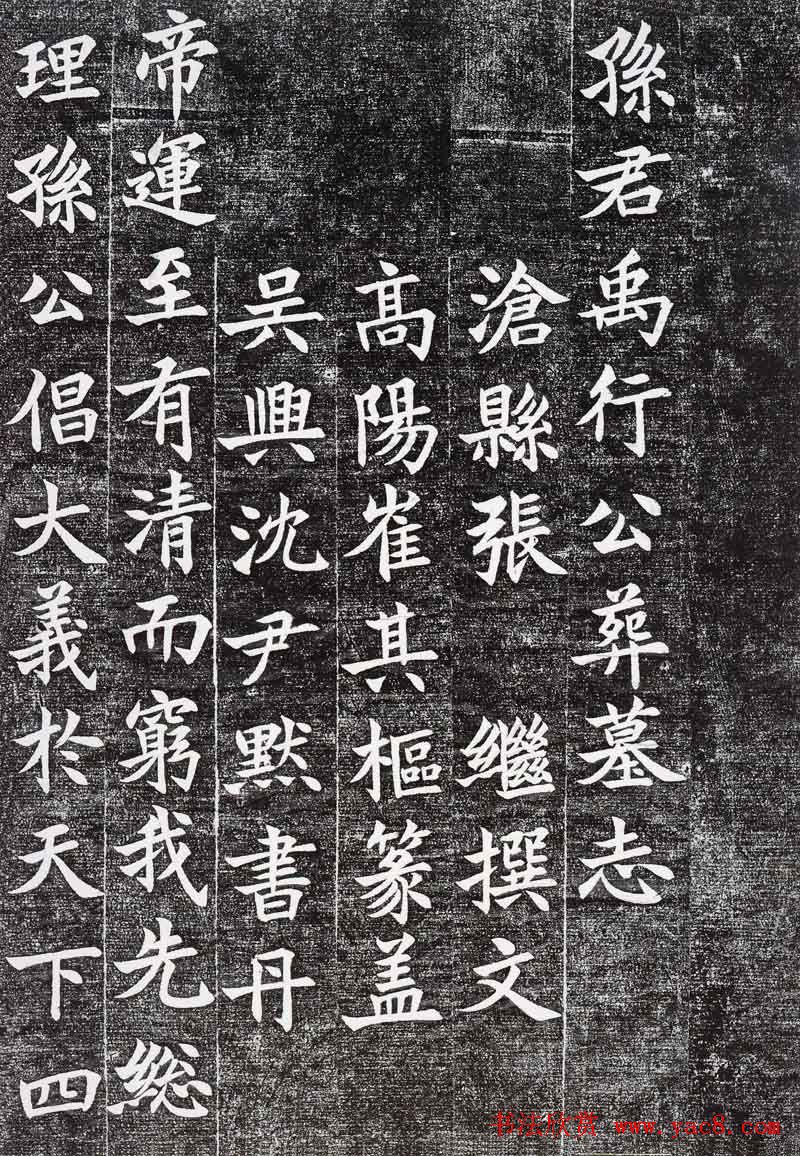 孫君禹行公葬墓志
滄縣張 繼撰文
高陽崔其樞篆盖
吴興沈尹默書丹
帝運至有清而窮我先総
理孫公倡大義於天下四
书法欣赏 www.yac8.com